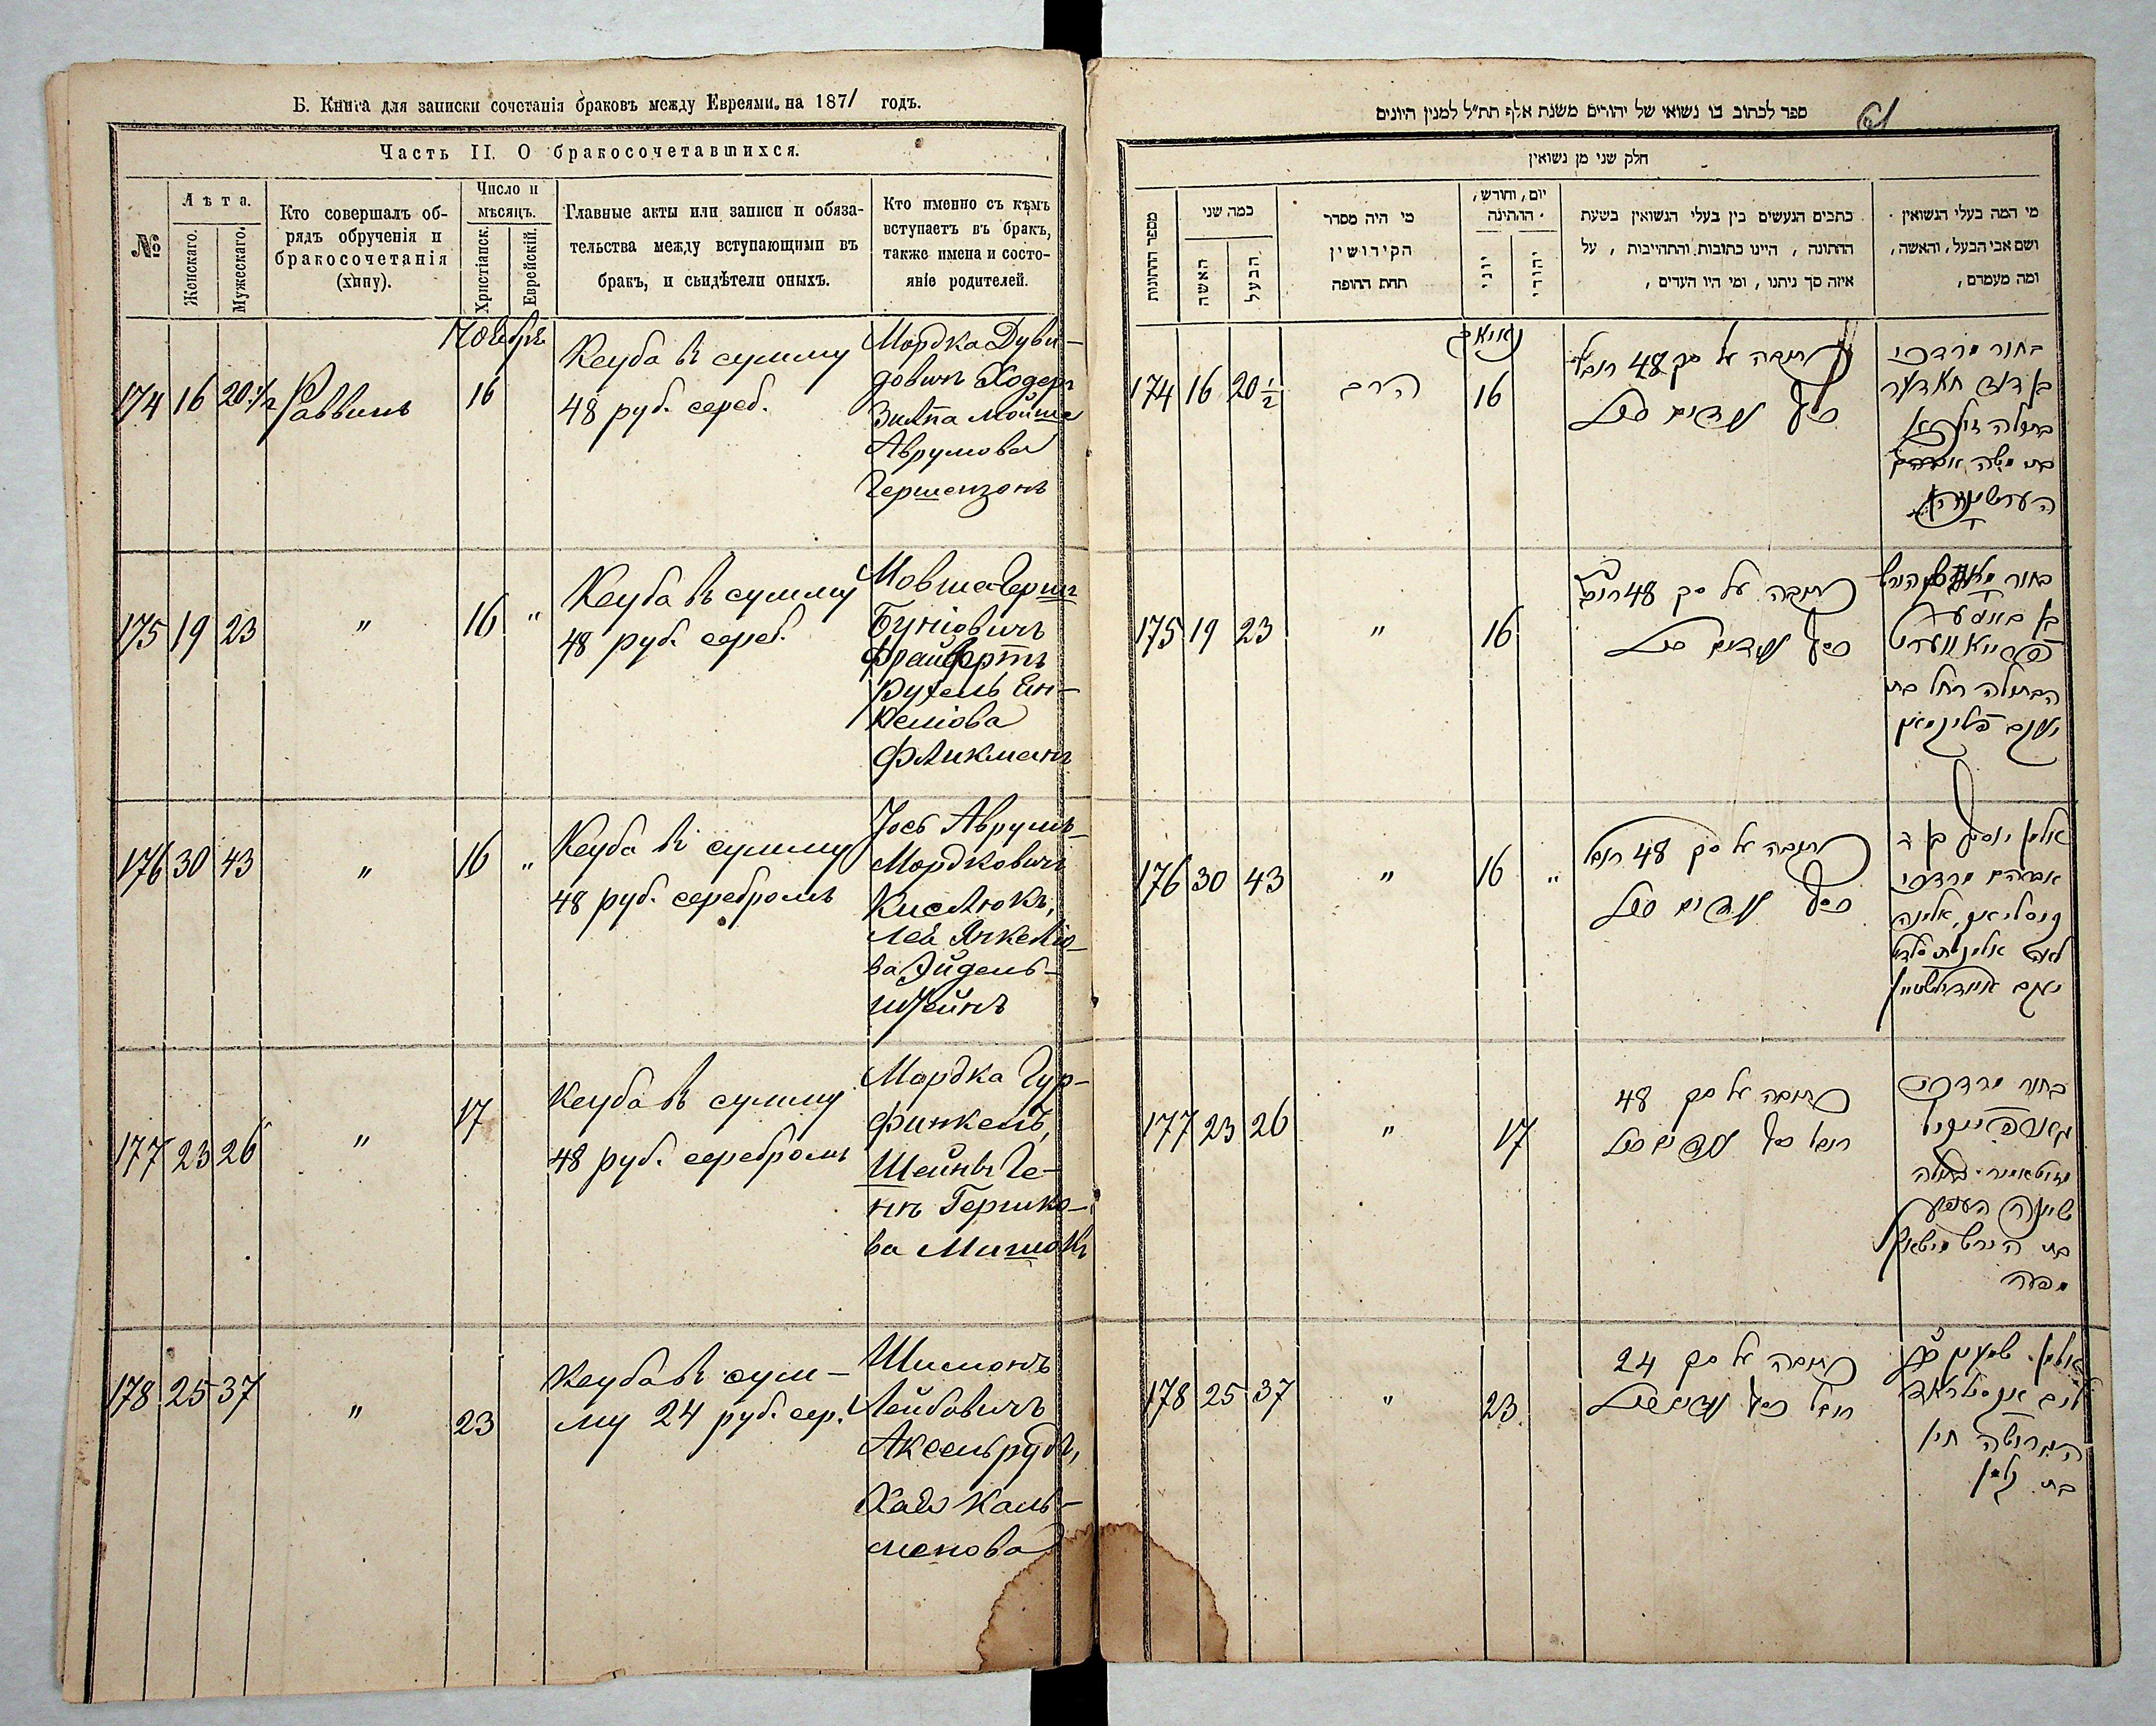 Б. Книга для записки сочетанія браковъ между Евреями на 1871 годъ.
Часть II. О бракосочетавшихся.
№
Лѣта.
Женскаго.
Мужескаго.
Кто совершалъ об-
рядъ обрученія и
бракосочетанія
(хипу).
Число и
мѣсяцъ.
Христіанск.
Еврейскій.
Главные акты или записи и обяза-
тельства между вступающими въ
бракъ, и свидѣтели оныхъ.
Кто именно съ кѣмъ
вступаетъ въ бракъ,
также имена и состо-
яніе родителей.
174 16 20 1/2 Раввинъ
Ноябрь
16
Кеуба въ сумму
48 руб. сереб.
Мордка Дуви-
довичъ Ходеръ
Злата Мойше
Аврумова
Гершензонъ
175 19 23 " 16 "
Кеуба въ сумму
48 руб. сереб.
Мовша Герш
Буніовичъ
Фрайвертъ
Рухель Ен-
келіова
Фликманъ
176 30 43 " 16 "
Кеуба въ сумму
48 руб. серебромъ
Іось Аврумъ-
Мордковичъ
Кислюкъ,
Лея Янкеліо-
ва Эйдель-
штейнъ
177 23 26 " 17
Кеуба въ сумму
48 руб. серебромъ
Мордка Гур-
финкель,
Шейнъ Ге-
ня Гершко-
ва Мишокъ
178 25 37 " 23
Кеуба въ сум-
му 24 руб. сер.
Шимонъ
Лейбовичъ
Аксельрудъ,
Хая Каль-
менова
ספר לכתוב בו נשואי של יהודים משנת אלף תת״ל למנין היונים
61
חלק שני מן נשואין
מספר החתונות
כמה שני
האשה
הבעל
מי היה מסדר
הקידושין
תחת החופה
יום, וחודש,
החתונה
יוני
יהודי
כתבים הנעשים בין בעלי הנשואין בשעת
החתונה, היינו כתובות והתחייבות, על
איזה סך ניתנו, ומי היו העדים,
מי המה בעלי הנשואין
ושם אבי הבעל, והאשה,
ומה מעמדם,
174 16 20 1/2 הרב
16
כתובה על סך 48 רובל
כסף
בחור מרדכי
בן דוד חאדער
בתולה זלאטא
בת משה אברהם
175 19 23 " 16
כתובה על סך 48 רובל
כסף
פרייאווערט
הבתולה רחל בת
יעקב פליקמאן
176 30 43 " 16 "
כתובה על סך 48 רובל
כסף
אלמן יוסף בן ר
אברהם מרדכי
יעקב איידלשטיין
177 23 26 " 17
כתובה על סך 48
רובל כסף
בחור מרדכי
בת הירש
178 25 37 " 23
כתובה על סך 24
רובל כסף
הגרושה חיה